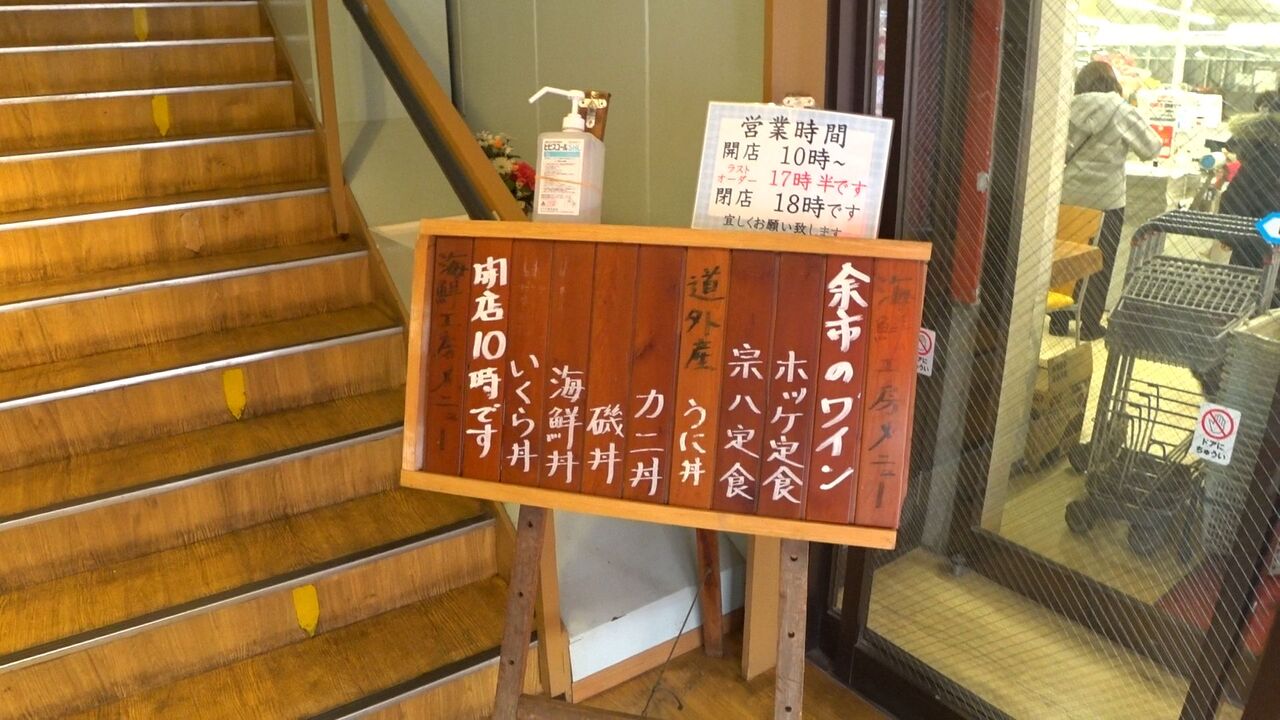 営業時間
開店 10時~
ラストオーダー 17時半です
閉店 18時です
宜しくお願い致します
海鮮工房メニュー
余市のワイン
ホッケ定食
宗八定食
道外産 うに丼
カニ丼
磯丼
海鮮丼
いくら丼
開店10時です
海鮮工房メニュー
ヒビスコール
ドアに
ちゅうい